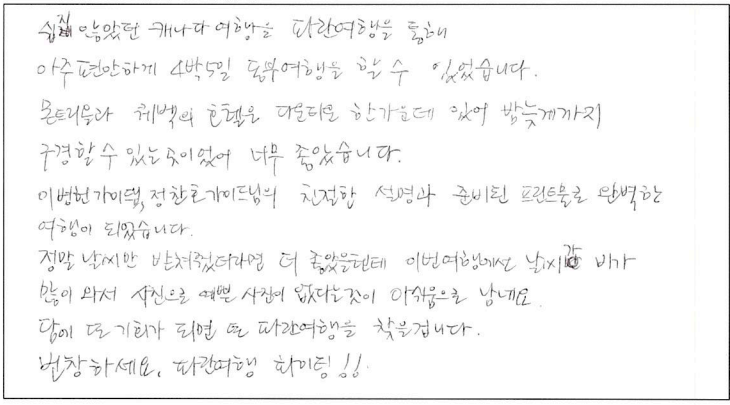 쉽집 않았던 캐나다여행을 파란여행을 통해
아주편안하게 4박5일 동부여행을 할 수 있었습니다.
몬트리올과 퀘벡의 호텔은 다운타운 한가운데 있어 밤늦게까지
구경할 수 있는 곳이었어 너무 좋았습니다.
이병헌가이드님, 정찬호가이드님의 친절함 설명과 준비된 프린트물로 완벽한
여행이 되었습니다.
정말 날씨만 받쳐줬더라면 더 좋았을텐데 이번여행에선 날씨가 비가
많이 와서 사진으로 예쁜 사진이 없다는것이 아쉬움으로 남네요.
담에 또 기회가 되면 또 파란여행을 찾을겁니다.
번창하세요, 파란여행 화이팅!!